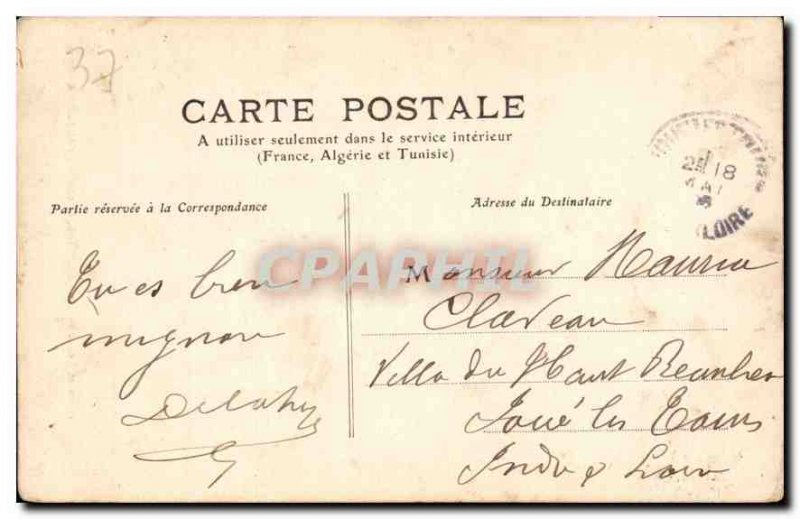 37
CARTE POSTALE
A utiliser seulement dans le service intérieur
(France, Algérie et Tunisie)
Partie réservée à la Correspondance
Adresse du Destinataire
LOIRE
CPAPHIL
Tu es bien
mignon
Monsieur Maurice
Claveau
Villa du Haut
Joué les Tours
Indre & Loire